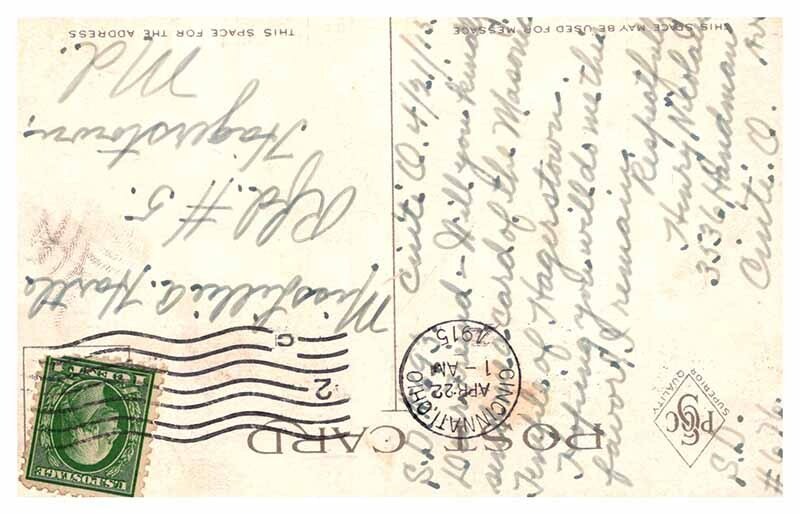 POST CARD
THIS SPACE MAY BE USED FOR MESSAGE
THIS SPACE FOR THE ADDRESS
SUPERIOR QUALITY
CINCINNATI, OHIO
APR 22
1-AM
1915
2
C
U.S. POSTAGE
1 CENT 1
Cinti. O. 4/21/15
Will you kindly
card of the Masonic
Temple of Hagerstown.
Hoping you will do me this
favor, I remain
Respectfully
Henry
3536 Handman
Cinti. O.
S.D.
Miss Lillie A. Hartle
Rfd. #5.
Hagerstown,
Md.